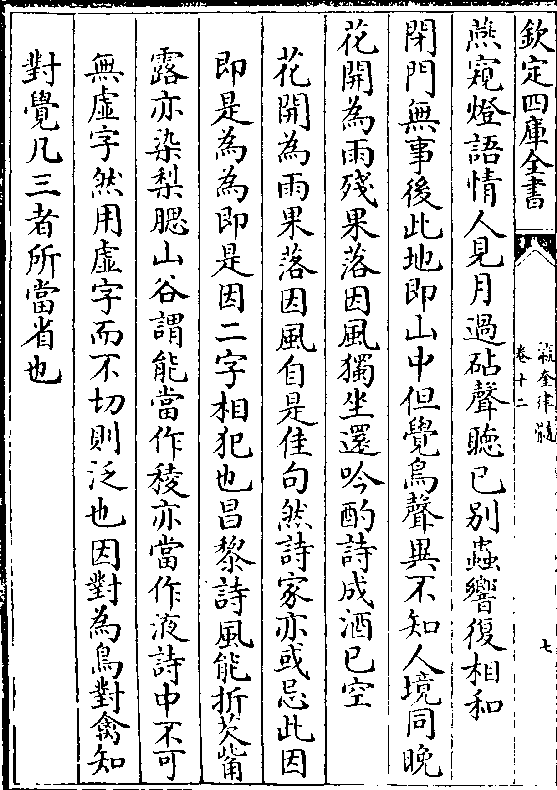 欽定四庫全書
瀛奎律髓
卷十二
七
燕窺燈語情人見月過砧聲聽已別蟲響復相和
閉門無事後此地即山中但覺鳥聲異不知人境同晚
花開為雨殘果落因風獨坐還吟酌詩成酒已空
花開為雨果落因風自是佳句然詩家亦或忌此因
即是為為即是因二字相犯也昌黎詩風能折芡觜
露亦染梨腮山谷謂能當作稜亦當作液詩中不可
無虛字然用虛字而不切則泛也因對為鳥對禽知
對覺凡三者所當省也